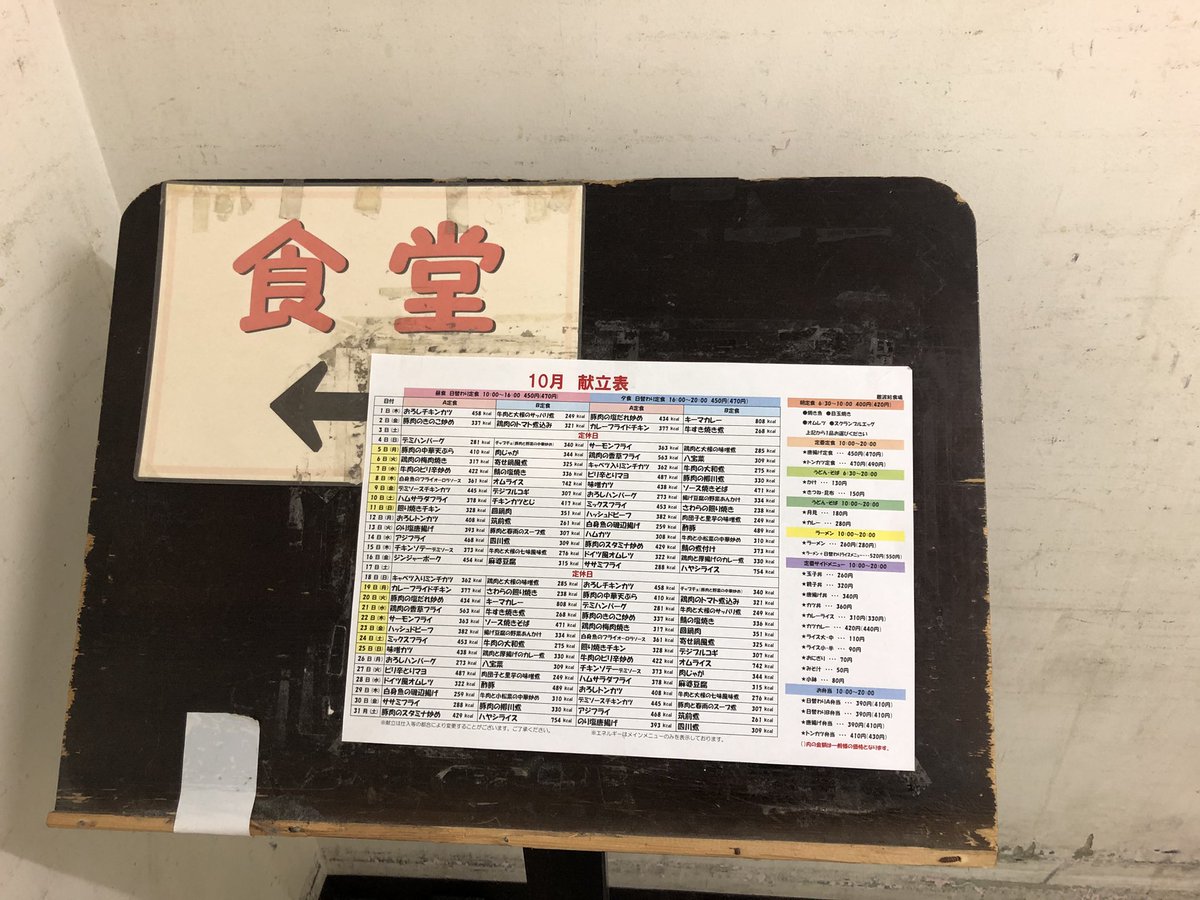 食堂
10月 献立表
難波給食場
日付 昼食 日替わり定食 10:00~16:00 450円(470円) 夕食 日替わり定食 16:00~20:00 450円(470円)
A定食 B定食 A定食 B定食
1日(木) おろしチキンカツ 458 kcal 牛肉と大根のサッパリ煮 249 kcal 豚肉の塩だれ炒め 434 kcal キーマカレー 808 kcal
2日(金) 豚肉のきのこ炒め 337 kcal 鶏肉のトマト煮込み 321 kcal カレーフライドチキン 377 kcal 牛すき焼き煮 268 kcal
3日(土) 定休日
4日(日) デミハンバーグ 281 kcal チャプチェ(豚肉と野菜の中華炒め) 340 kcal サーモンフライ 563 kcal 鶏肉と大根の味噌煮 285 kcal
5日(月) 豚肉の中華天ぷら 410 kcal 肉じゃが 344 kcal 鶏肉の香草フライ 563 kcal 八宝菜 309 kcal
6日(火) 鶏肉の梅肉焼き 317 kcal 寄せ鍋風煮 325 kcal キャベツ入りミンチカツ 362 kcal 牛肉の大和煮 275 kcal
7日(水) 牛肉のピリ辛炒め 422 kcal 鯖の塩焼き 336 kcal ピリ辛とりマヨ 487 kcal 豚肉の柳川煮 330 kcal
8日(木) 白身魚のフライオーロラソース 361 kcal オムライス 742 kcal 味噌カツ 438 kcal ソース焼きそば 471 kcal
9日(金) デミソースチキンカツ 445 kcal デジプルコギ 307 kcal おろしハンバーグ 273 kcal 揚げ豆腐の野菜あんかけ 334 kcal
10日(土) ハムサラダフライ 378 kcal チキンカツとじ 417 kcal ミックスフライ 453 kcal さわらの照り焼き 238 kcal
11日(日) 照り焼きチキン 328 kcal 回鍋肉 351 kcal ハッシュドビーフ 382 kcal 肉団子と里芋の味噌煮 249 kcal
12日(月) おろしトンカツ 408 kcal 筑前煮 261 kcal 白身魚の磯辺揚げ 259 kcal 酢豚 489 kcal
13日(火) のり塩唐揚げ 393 kcal 豚肉と春雨のスープ煮 307 kcal ハムカツ 308 kcal 牛肉と小松菜の中華炒め 310 kcal
14日(水) アジフライ 468 kcal 四川煮 309 kcal 豚肉のスタミナ炒め 429 kcal 鯖の煮付け 373 kcal
15日(木) チキンソテーデミソース 373 kcal 牛肉と大根の七味風味煮 276 kcal ドイツ風オムレツ 322 kcal 鶏肉と厚揚げのカレー煮 330 kcal
16日(金) ジンジャーポーク 454 kcal 麻婆豆腐 315 kcal ササミフライ 288 kcal ハヤシライス 754 kcal
17日(土) 定休日
18日(日) キャベツ入りミンチカツ 362 kcal 鶏肉と大根の味噌煮 285 kcal おろしチキンカツ 458 kcal チャプチェ(豚肉と野菜の中華炒め) 340 kcal
19日(月) カレーフライドチキン 377 kcal さわらの照り焼き 238 kcal 豚肉の中華天ぷら 410 kcal 鶏肉のトマト煮込み 321 kcal
20日(火) 豚肉の塩だれ炒め 434 kcal キーマカレー 808 kcal デミハンバーグ 281 kcal 牛肉と大根のサッパリ煮 249 kcal
21日(水) 鶏肉の香草フライ 563 kcal 牛すき焼き煮 268 kcal 豚肉のきのこ炒め 337 kcal 鯖の塩焼き 336 kcal
22日(木) サーモンフライ 363 kcal ソース焼きそば 471 kcal 鶏肉の梅肉焼き 317 kcal 回鍋肉 351 kcal
23日(金) ハッシュドビーフ 382 kcal 揚げ豆腐の野菜あんかけ 334 kcal 白身魚のフライオーロラソース 361 kcal 寄せ鍋風煮 325 kcal
24日(土) ミックスフライ 453 kcal 牛肉の大和煮 275 kcal 照り焼きチキン 328 kcal デジプルコギ 307 kcal
25日(日) 味噌カツ 438 kcal 鶏肉と厚揚げのカレー煮 330 kcal 牛肉のピリ辛炒め 422 kcal オムライス 742 kcal
26日(月) おろしハンバーグ 273 kcal 八宝菜 309 kcal チキンソテーデミソース 373 kcal 肉じゃが 344 kcal
27日(火) ピリ辛とりマヨ 487 kcal 肉団子と里芋の味噌煮 249 kcal ハムサラダフライ 378 kcal 麻婆豆腐 315 kcal
28日(水) ドイツ風オムレツ 322 kcal 酢豚 489 kcal おろしトンカツ 408 kcal 牛肉と大根の七味風味煮 276 kcal
29日(木) 白身魚の磯辺揚げ 259 kcal 牛肉と小松菜の中華炒め 310 kcal デミソースチキンカツ 445 kcal 豚肉と春雨のスープ煮 307 kcal
30日(金) ササミフライ 288 kcal 豚肉の柳川煮 330 kcal アジフライ 468 kcal 筑前煮 261 kcal
31日(土) 豚肉のスタミナ炒め 429 kcal ハヤシライス 754 kcal のり塩唐揚げ 393 kcal 四川煮 309 kcal
※献立は仕入等の都合により変更することがございます。ご了承ください。
※エネルギーはメインメニューのみを表示しております。
朝定食 6:30~10:00 400円(420円)
●焼き魚 ●目玉焼き
●オムレツ ●スクランブルエッグ
上記から1品お選びください
定番定食 10:00~20:00
★唐揚げ定食 ・・・ 450円(470円)
★トンカツ定食 ・・・ 470円(490円)
うどん・そば 6:30~20:00
★かけ ・・・ 130円
★きつね・昆布 ・・・ 150円
うどん・そば 10:00~20:00
★月見 ・・・ 180円
★カレー ・・・ 280円
ラーメン 10:00~20:00
★ラーメン ・・・ 260円(280円)
★ラーメン+日替わりライスメニュー・・・520円(550円)
定番サイドメニュー 10:00~20:00
★玉子丼 ・・・ 260円
★親子丼 ・・・ 320円
★唐揚げ丼 ・・・ 340円
★カツ丼 ・・・ 360円
★カレーライス ・・・ 310円(330円)
★カツカレー ・・・ 420円(440円)
★ライス大・中 ・・・ 110円
★ライス小・半 ・・・ 90円
★おにぎり ・・・ 70円
★みそ汁 ・・・ 50円
★小鉢 ・・・ 80円
お弁当 10:00~20:00
★日替わりA弁当 ・・・ 390円(410円)
★日替わりB弁当 ・・・ 390円(410円)
★唐揚げ弁当 ・・・ 390円(410円)
★トンカツ弁当 ・・・ 410円(430円)
( )内の金額は一般様の価格となります。